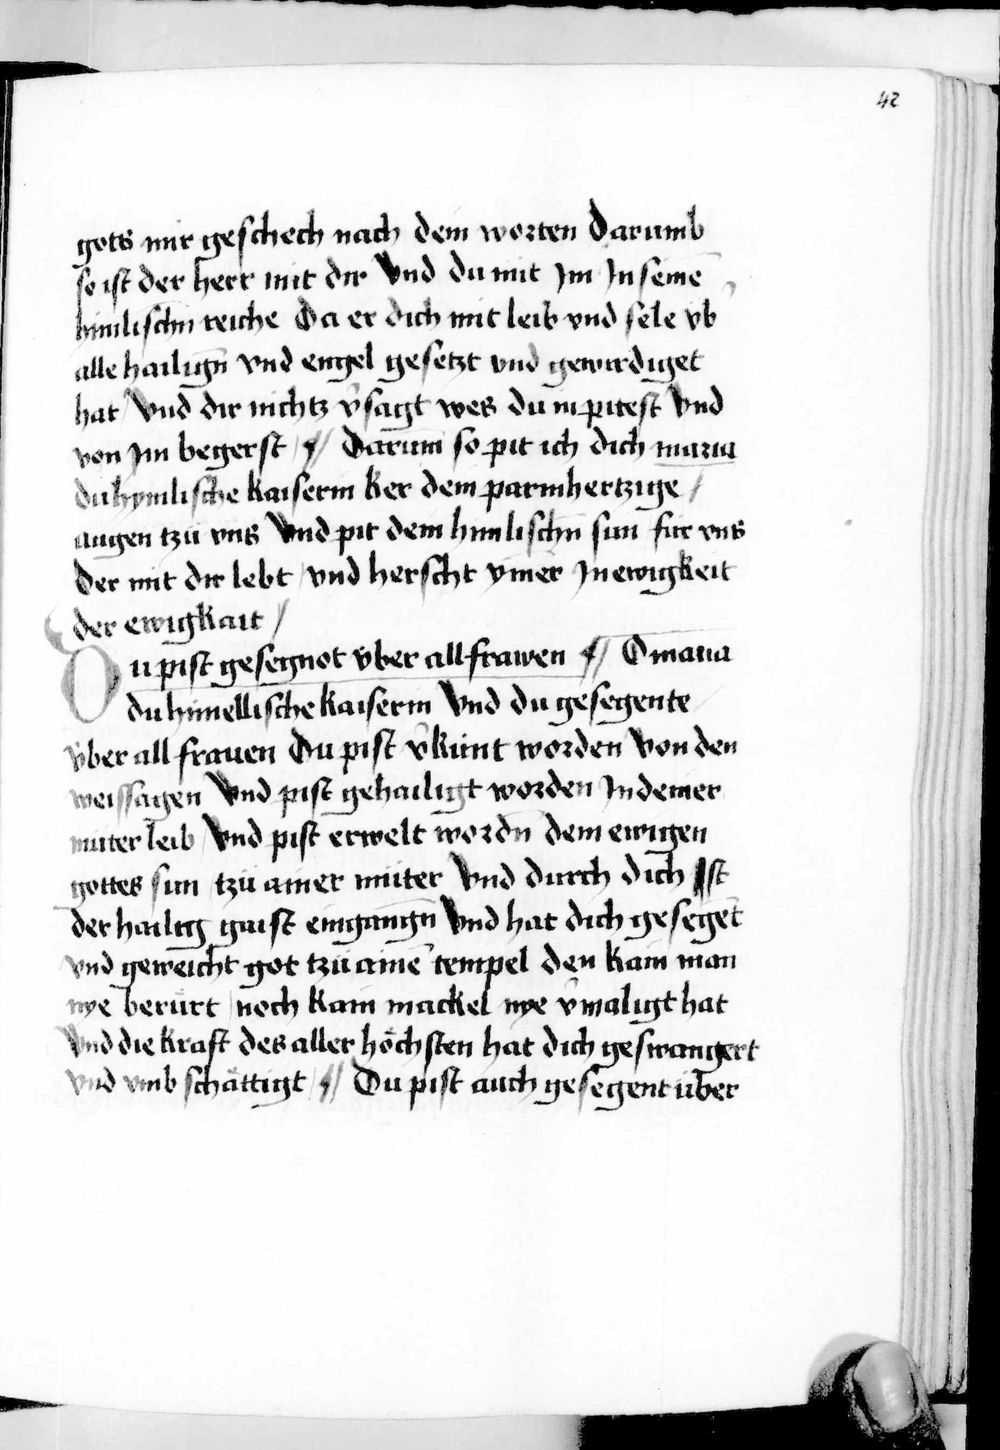 42
gots mir geschech nach dein worten Darumb
so ist der herr mit dir Vnd du mit Im In seinē
himlischn̄ reiche Da er dich mit leib vnd sele vb̄
alle hailign̄ vnd engel gesetzt vnd gewirdiget
hat / Vnd dir nichtz v̄sagt wes du in pitest Vnd
von Im begerst / Darum̄ so pit ich dich maria
du hymlische kaiserin ker dein parmhertzige /
augen tzü vns Vnd pit dein himlischn̄ sun für vns
Der mit dir lebt / vnd herscht ym̄er In ewigkeit
der ewigkait /
Du pist gesegnot v̈ber all frawen O maria
du himellische kaiserin Vnd du gesegente
v̈ber all frauen Du pist v̄künt worden Von den
weissagen Vnd pist gehailigt worden In deiner
müter leib / Vnd pist erwelt wordn̄ dem ewigen
gottes sun / tzü ainer müter Vnd durch dich Ist
der hailig gaist eingangn̄ Vnd hat dich gesegēt
vnd geweicht got tzü ainē tempel den kain man
nye berürt / noch kain mackel nye v̄maligt hat
Vnd die kraft des aller höchsten hat dich geswangert
vnd vmb schättigt / Du pist auch gesegent über